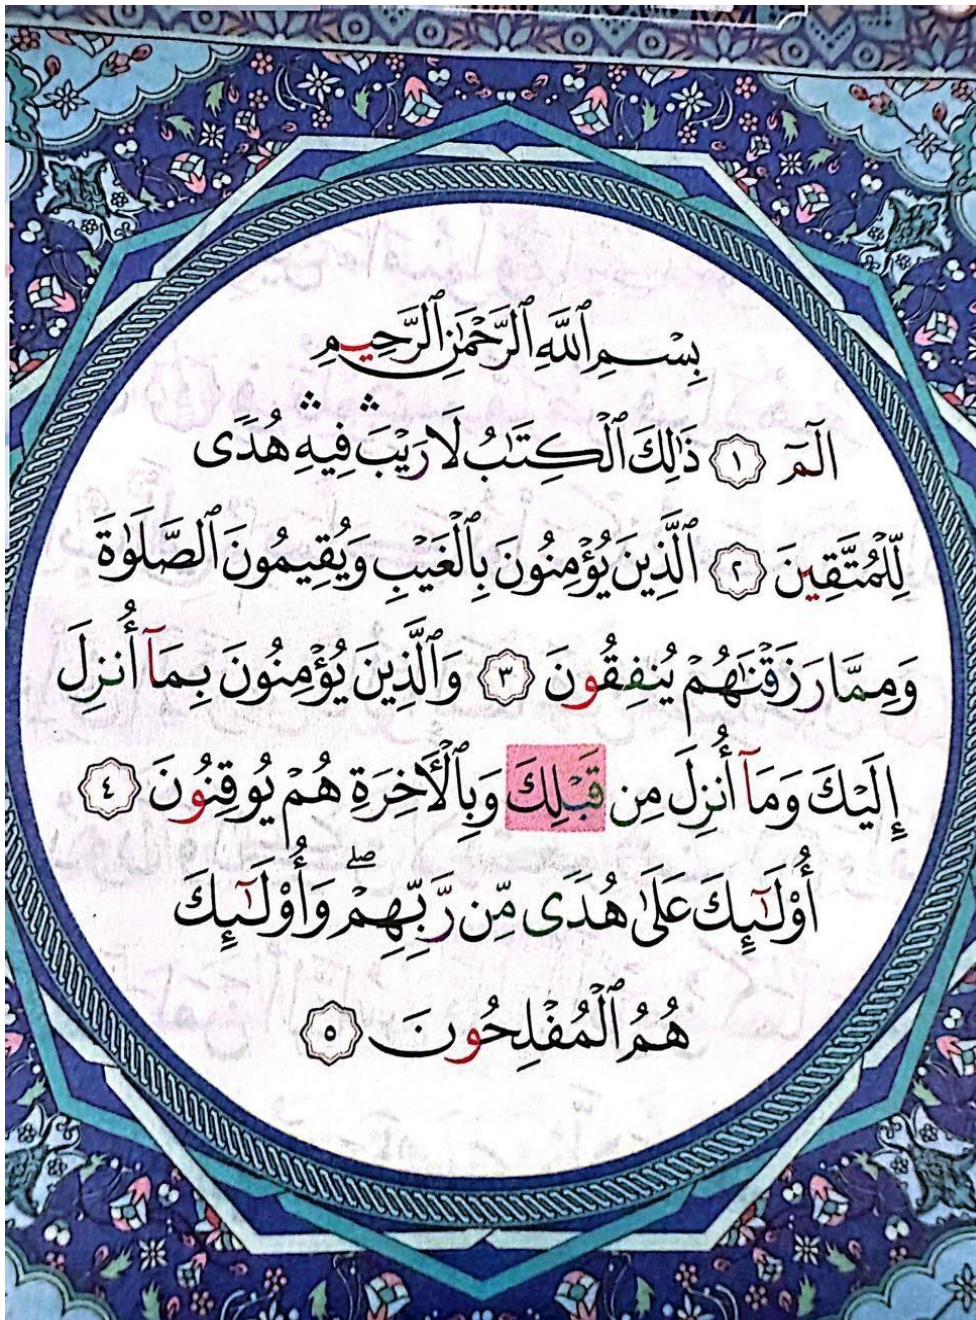 بِسْمِ ٱللَّهِ ٱلرَّحْمَٰنِ ٱلرَّحِيمِ
الٓمٓ ۝١ ذَٰلِكَ ٱلْكِتَٰبُ لَا رَيْبَ ۛ فِيهِ ۛ هُدًى
لِّلْمُتَّقِينَ ۝٢ ٱلَّذِينَ يُؤْمِنُونَ بِٱلْغَيْبِ وَيُقِيمُونَ ٱلصَّلَوٰةَ
وَمِمَّا رَزَقْنَٰهُمْ يُنفِقُونَ ۝٣ وَٱلَّذِينَ يُؤْمِنُونَ بِمَآ أُنزِلَ
إِلَيْكَ وَمَآ أُنزِلَ مِن قَبْلِكَ وَبِٱلْأَخِرَةِ هُمْ يُوقِنُونَ ۝٤
أُو۟لَٰٓئِكَ عَلَىٰ هُدًى مِّن رَّبِّهِمْ ۖ وَأُو۟لَٰٓئِكَ
هُمُ ٱلْمُفْلِحُونَ ۝٥